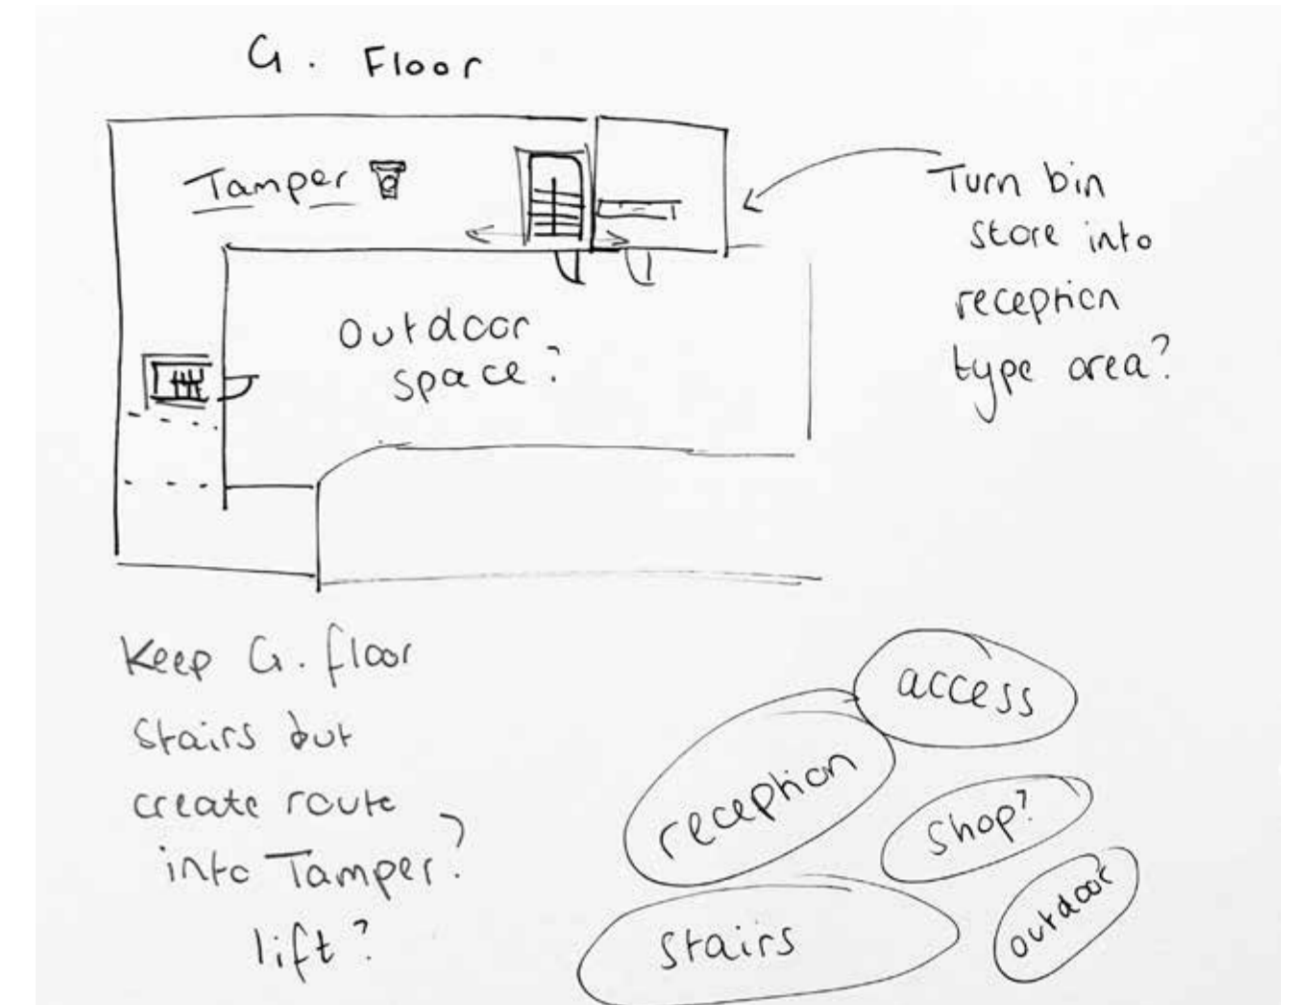 G. Floor
Tamper
Outdoor
space?
Turn bin
store into
reception
type area?
Keep G. floor
stairs but
create route
into Tamper?
lift?
access
reception
shop?
outdoor
stairs